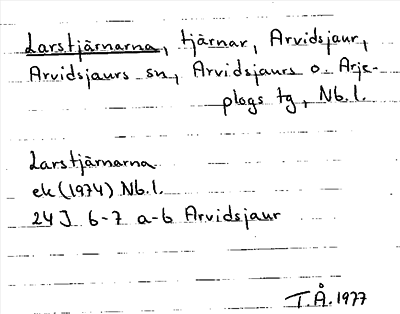 Larstjärnarna, tjärnar, Arvidsjaur,
Arvidsjaurs sn, Arvidsjaurs o. Arje-
plogs tg, Nb.l.
Larstjärnarna
ek (1974) Nb.l.
24J 6-7 a-b Arvidsjaur
T.Å. 1977